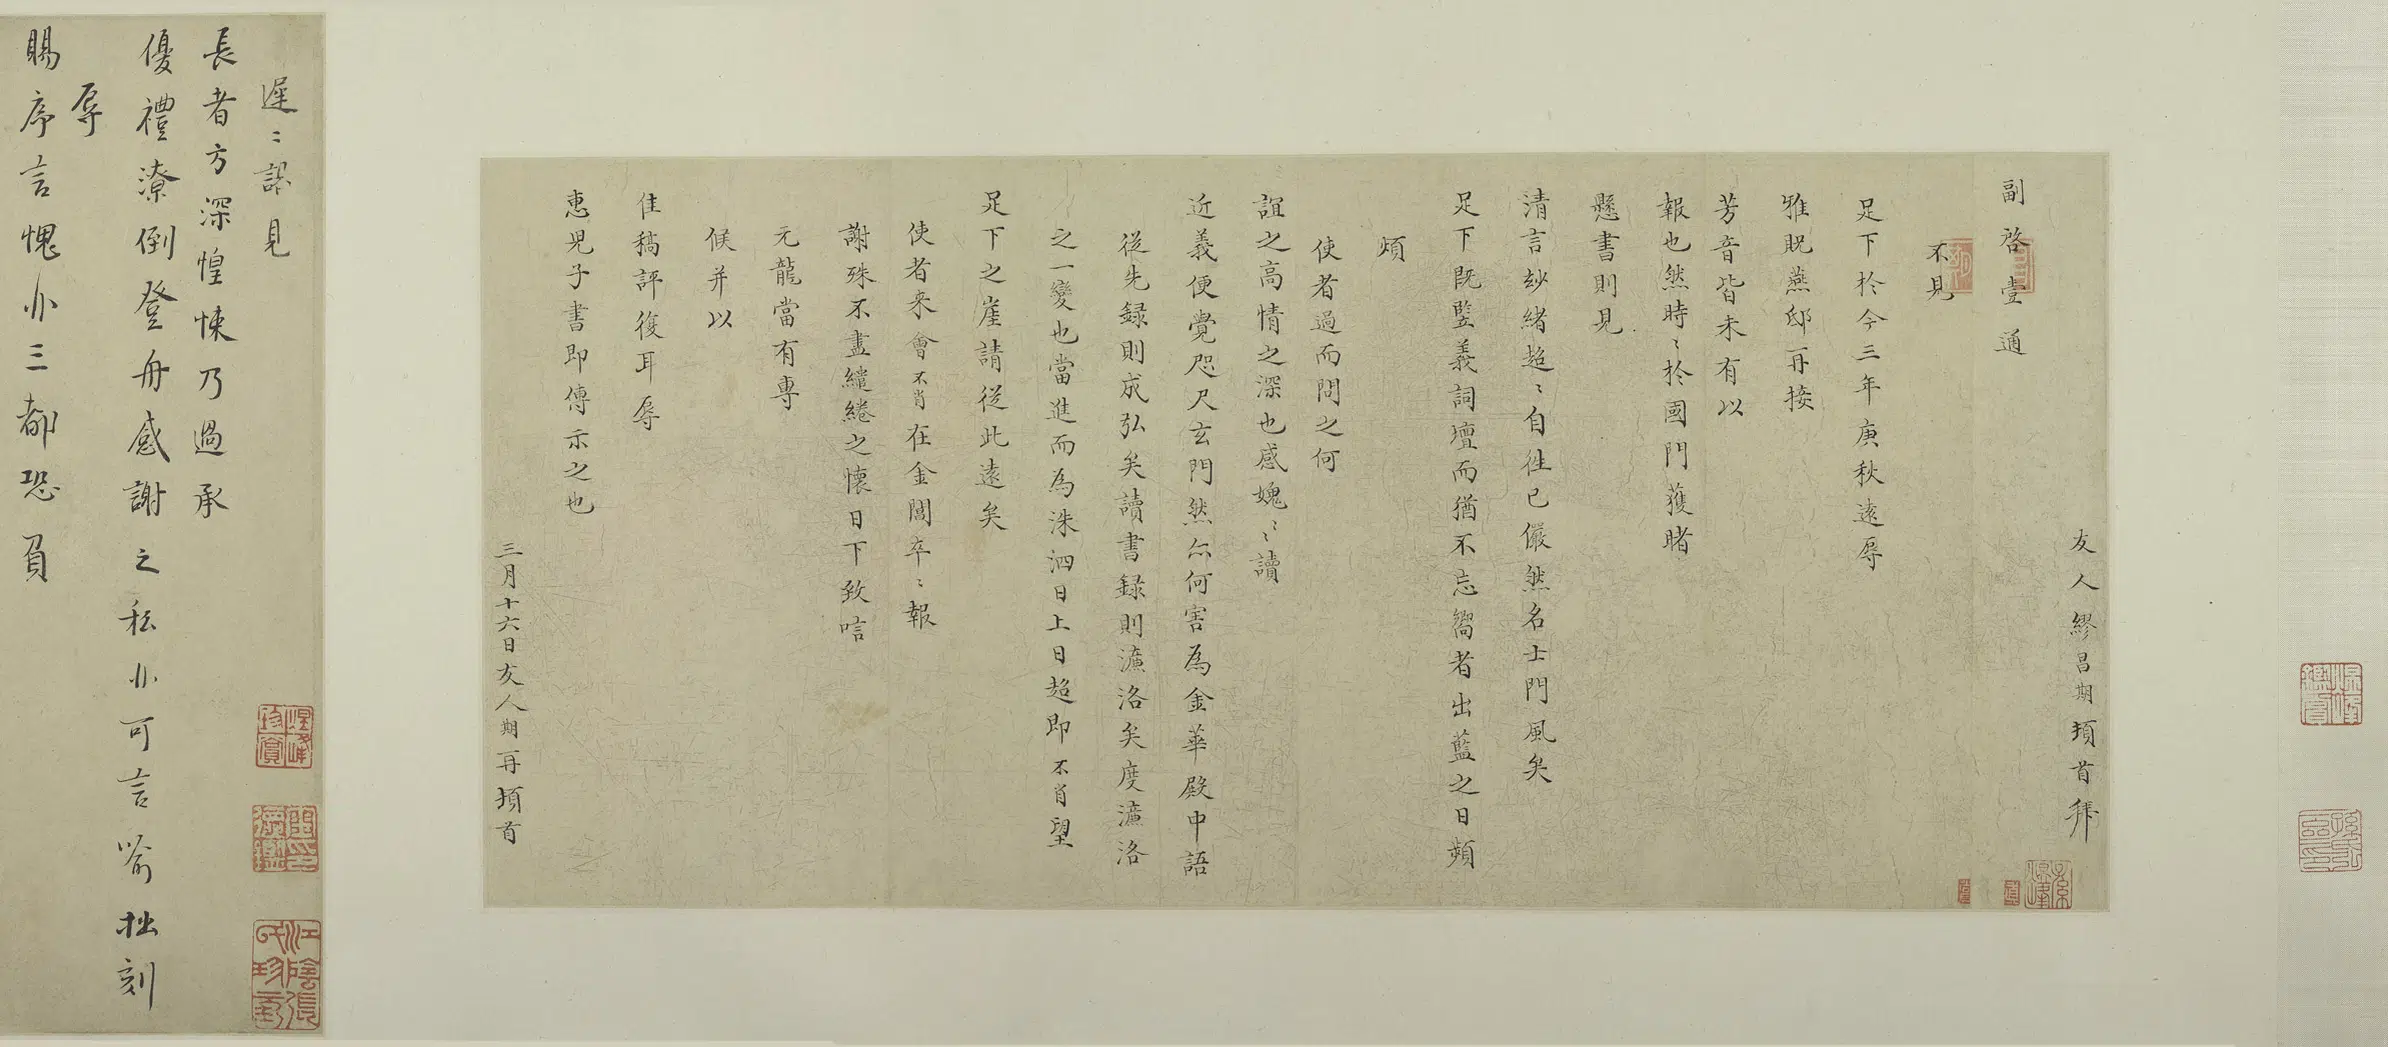 友人繆昌期頓首拜
副啓壹通
不見
足下於今三年庚秋遠辱
雅貺燕邸再接
芳音皆未有以
報也然時〻於國門獲睹
懸書則見
清言紗緒超〻自徃已儼然名士門風矣
足下既堅義詞壇而猶不忘嚮者出藍之日頻
煩
使者過而問之何
誼之高情之深也感媿〻讀
近義便覺咫尺玄門然亦何害為金華殿中語
從先録則成弘矣讀書録則濂洛矣度濂洛
之一變也當進而為洙泗日上日超即不肖望
足下之崖請從此遠矣
使者来會不肖在金閶卒〻報
謝殊不盡繾綣之懷日下致唁
元龍當有專
候并以
佳稿評復耳辱
惠児子書即傳示之也
三月十六日友人期再頓首
遲〻認見
長者方深惶悚乃過承
優禮潦倒登舟感謝之私小可言喻拙刻
辱
賜序言愧小三都恐負
煜峰珍賞
江陰張氏珍藏
煜峰鑑賞